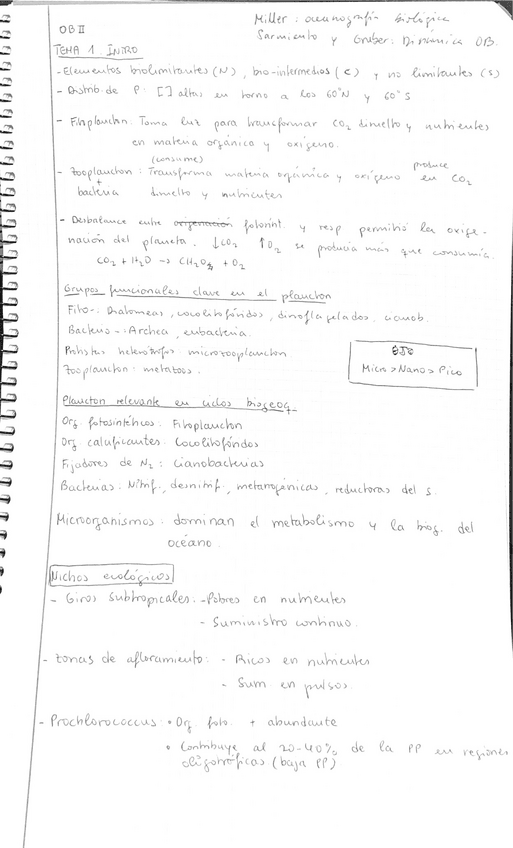 OB II
Miller: oceanografía biológica
Sarmiento y Gruber: Dinámica OB.
TEMA 1. INTRO
- Elementos biolimitantes (N), bio-intermedios (C) y no limitantes (S)
- Distrib de P: [] altas en torno a los 60°N y 60°S
- Fitoplancton: Toma luz para transformar CO2 disuelto y nutrientes
en materia orgánica y oxígeno.
(consume) produce
- Zooplancton: Transforma materia orgánica y oxígeno en CO2
+
bacteria disuelto y nutrientes
- Desbalance entre oxigenación fotosínt. y resp permitió la oxige-
nación del planeta. ↓CO2 ↑O2 se producía más que consumía.
CO2 + H2O → CH2O + O2
Grupos funcionales clave en el plancton
Fito-: Diatomeas, cocolitofóridos, dinoflagelados, cianob.
Bacterio-: Archea, eubacteria.
Protistas heterótrofos: microzooplancton
Zooplancton: metazoos.
Micro > Nano > Pico
Plancton relevante en ciclos biogeoq.
Org. fotosintéticos: Fitoplancton
Org calcificantes: Cocolitofóridos
Fijadores de N2: Cianobacterias
Bacterias: Nitrif., desnitrif., metanogénicas, reductoras del S.
Microorganismos: dominan el metabolismo y la biog. del
océano.
Nichos ecológicos
- Giros subtropicales: - Pobres en nutrientes
- Suministro continuo.
- Zonas de afloramiento: - Ricos en nutrientes
- Sum. en pulsos.
- Prochlorococcus • Org. foto. + abundante
• Contribuye al 20-40% de la PP en regiones
oligotróficas (baja PP)